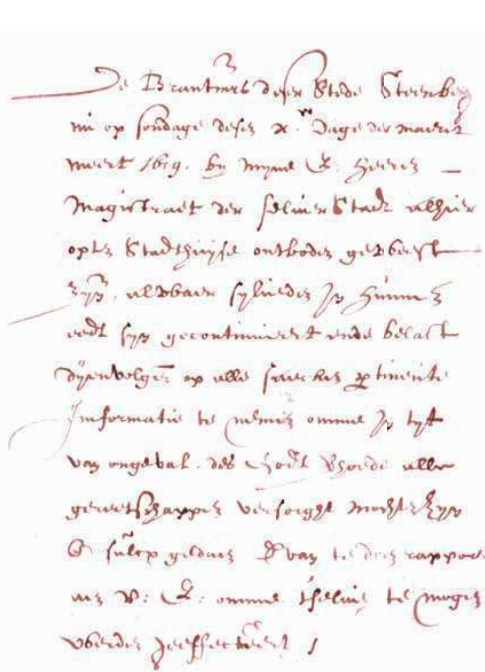 De Brantmrs deser Stede Steenber
nu op sondage desen x.n Dage der maent
meert 1619. by myne E: Heeren
Magistraet der selver Stadt alhier
opten Stadthuijse ontboden geweest
zyn, alwaer sylieden in hunnen
eedt syn gecontinueert ende belast
dyenvolgen op alle saecken pertinente
Informatie te nemen omme in tyt
van ongeval. des Godt verhoede alle
gereetschappen versorght mochten zyn
E sulcx gedaen van te doen rapport
aen v: E: omme tselve te mogen
werden geeffectueert